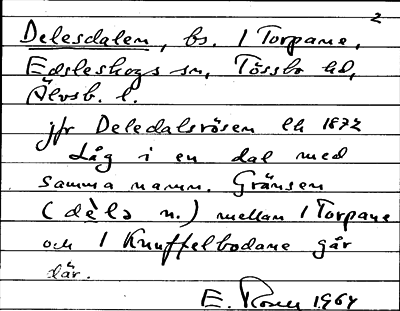 2
Delesdalen, bs. 1 Torpane,
Edsleskogs sn, Tössbo hd,
Älvsb. l.
jfr Deledalsrösen lh 1872
Låg i en dal med
samma namn. Gränsen
(dèlə n.) mellan 1 Torpane
och 1 Knuffelbodane går
där.
E. 1964